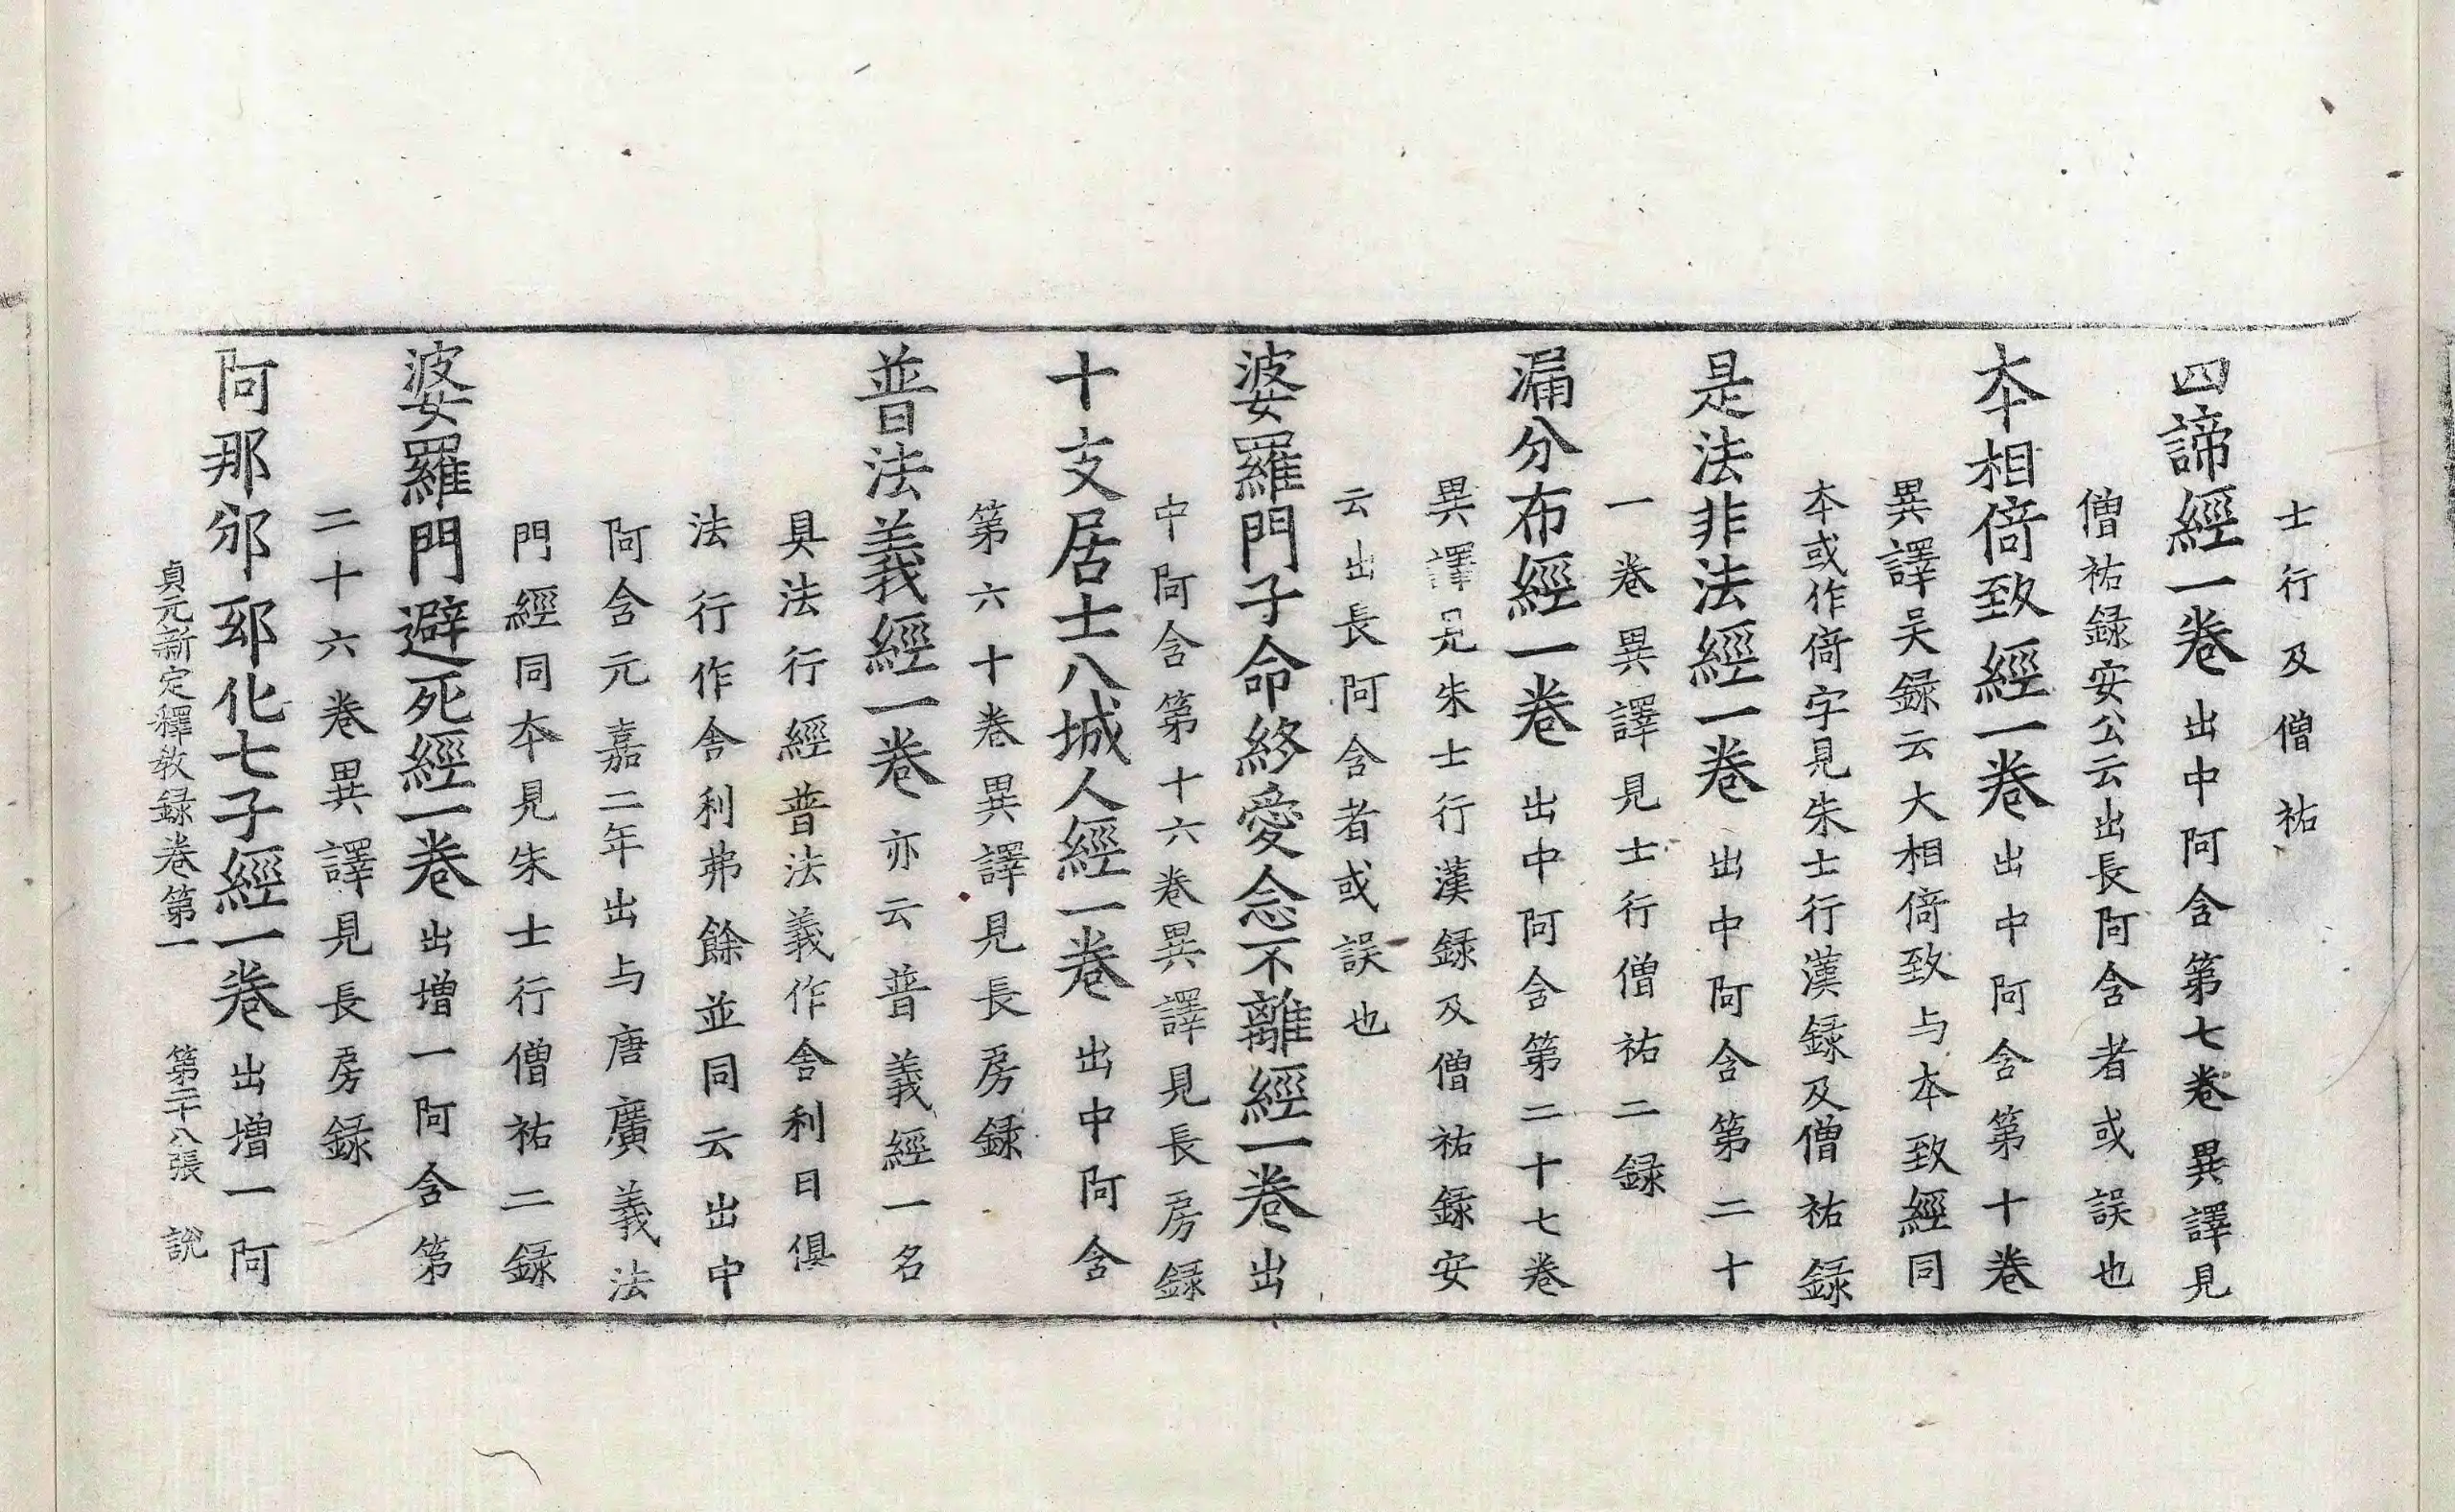 士行及僧祐
四諦經一卷出中阿含第七卷異譯見
僧祐録安公云出長阿含者或誤也
夲相倚致經一卷出中阿含第十卷
異譯吴録云大相倚致与夲致經同
夲或作倚字見朱士行漢録及僧祐録
是法非法經一卷出中阿含第二十
一卷異譯見士行僧祐二録
漏分布經一卷出中阿含第二十七卷
異譯見朱士行漢録及僧祐録安
云出長阿含者或誤也
婆羅門子命終愛念不離經一卷出
中阿含第十六卷異譯見長房録
十支居士八城人經一卷出中阿含
第六十卷異譯見長房録
普法義經一卷亦云普義經一名
具法行經普法義作舎利曰俱
法行作舎利弗餘並同云出中
阿含元嘉二年出与唐廣義法
門經同夲見朱士行僧祐二録
婆羅門避死經一卷出增一阿含第
二十六卷異譯見長房録
阿那邠邸化七子經一卷出增一阿
貞元新定釋教録卷第一 第二十八張 說